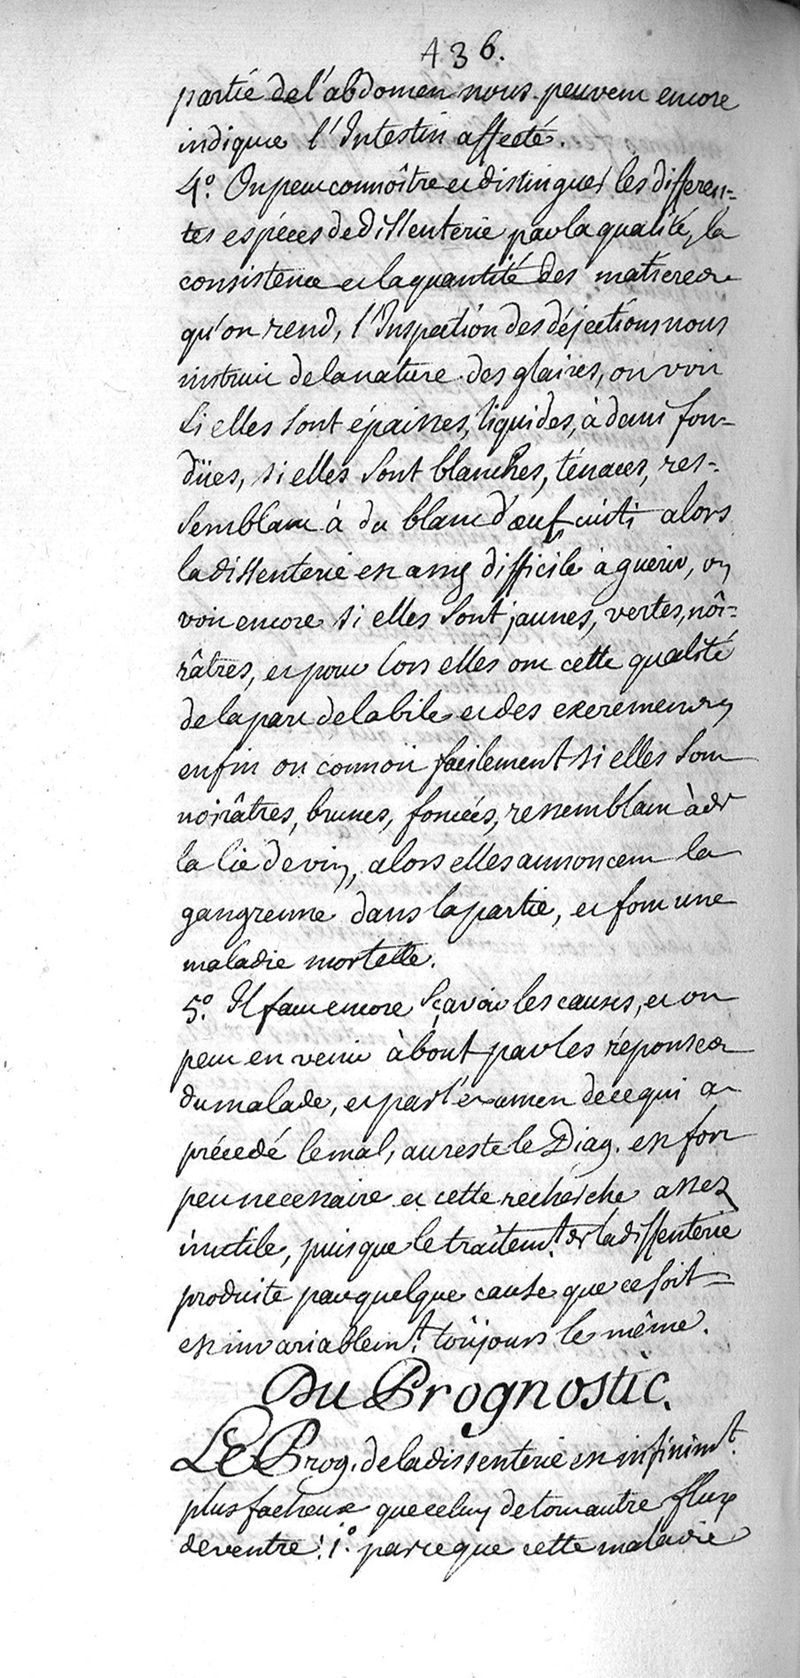 436.
partie de l'abdomen nous peuvent encore
indiquer l'Intestin affecté.
4.° On peut connoître et distinguer les differen=
tes espéces de dissenterie par la qualité, la
consistence et la quantité des matieres
qu'on rend, l'Inspection des déjections nous
instruit de la nature des glaires, on voit
si elles sont épaisses, liquides, à demi fon=
dües, si elles sont blanches, ténaces, res=
semblant à du blanc d'œuf cuit; alors
la dissenterie est assez difficile à guerir, on
voit encore si elles sont jaunes, vertes, nôi=
râtres, et pour lors elles ont cette qualité
de la part de la bile et des excremens,
enfin on connoit facilement si elles sont
noirâtres, brunes, foncées, ressemblant à de
la lie de vin, alors elles annoncent la
gangrenne dans la partie, et font une
maladie mortelle.
5.° Il faut encore sçavoir les causes, et on
peut en venir à bout par les réponses
du malade, et par l'examen de ce qui a
précedé le mal, au reste le Diag. est fort
peu necessaire et cette recherche assez
inutile, puisque le traitem.t de la dissenterie
produite par quelque cause que ce soit
est invariablem.t toûjours le même.
Du Prognostic.
Le Prog. de la dissenterie est infinim.t
plus facheux que celuy de tout autre flux
de ventre: 1.° parce que cette maladie